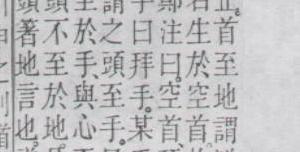 首至地謂
生於空首
鄭注曰。空首
曰拜手。某
謂之頭至手。
至於手、與心
頭不至於地
頭著地言也。